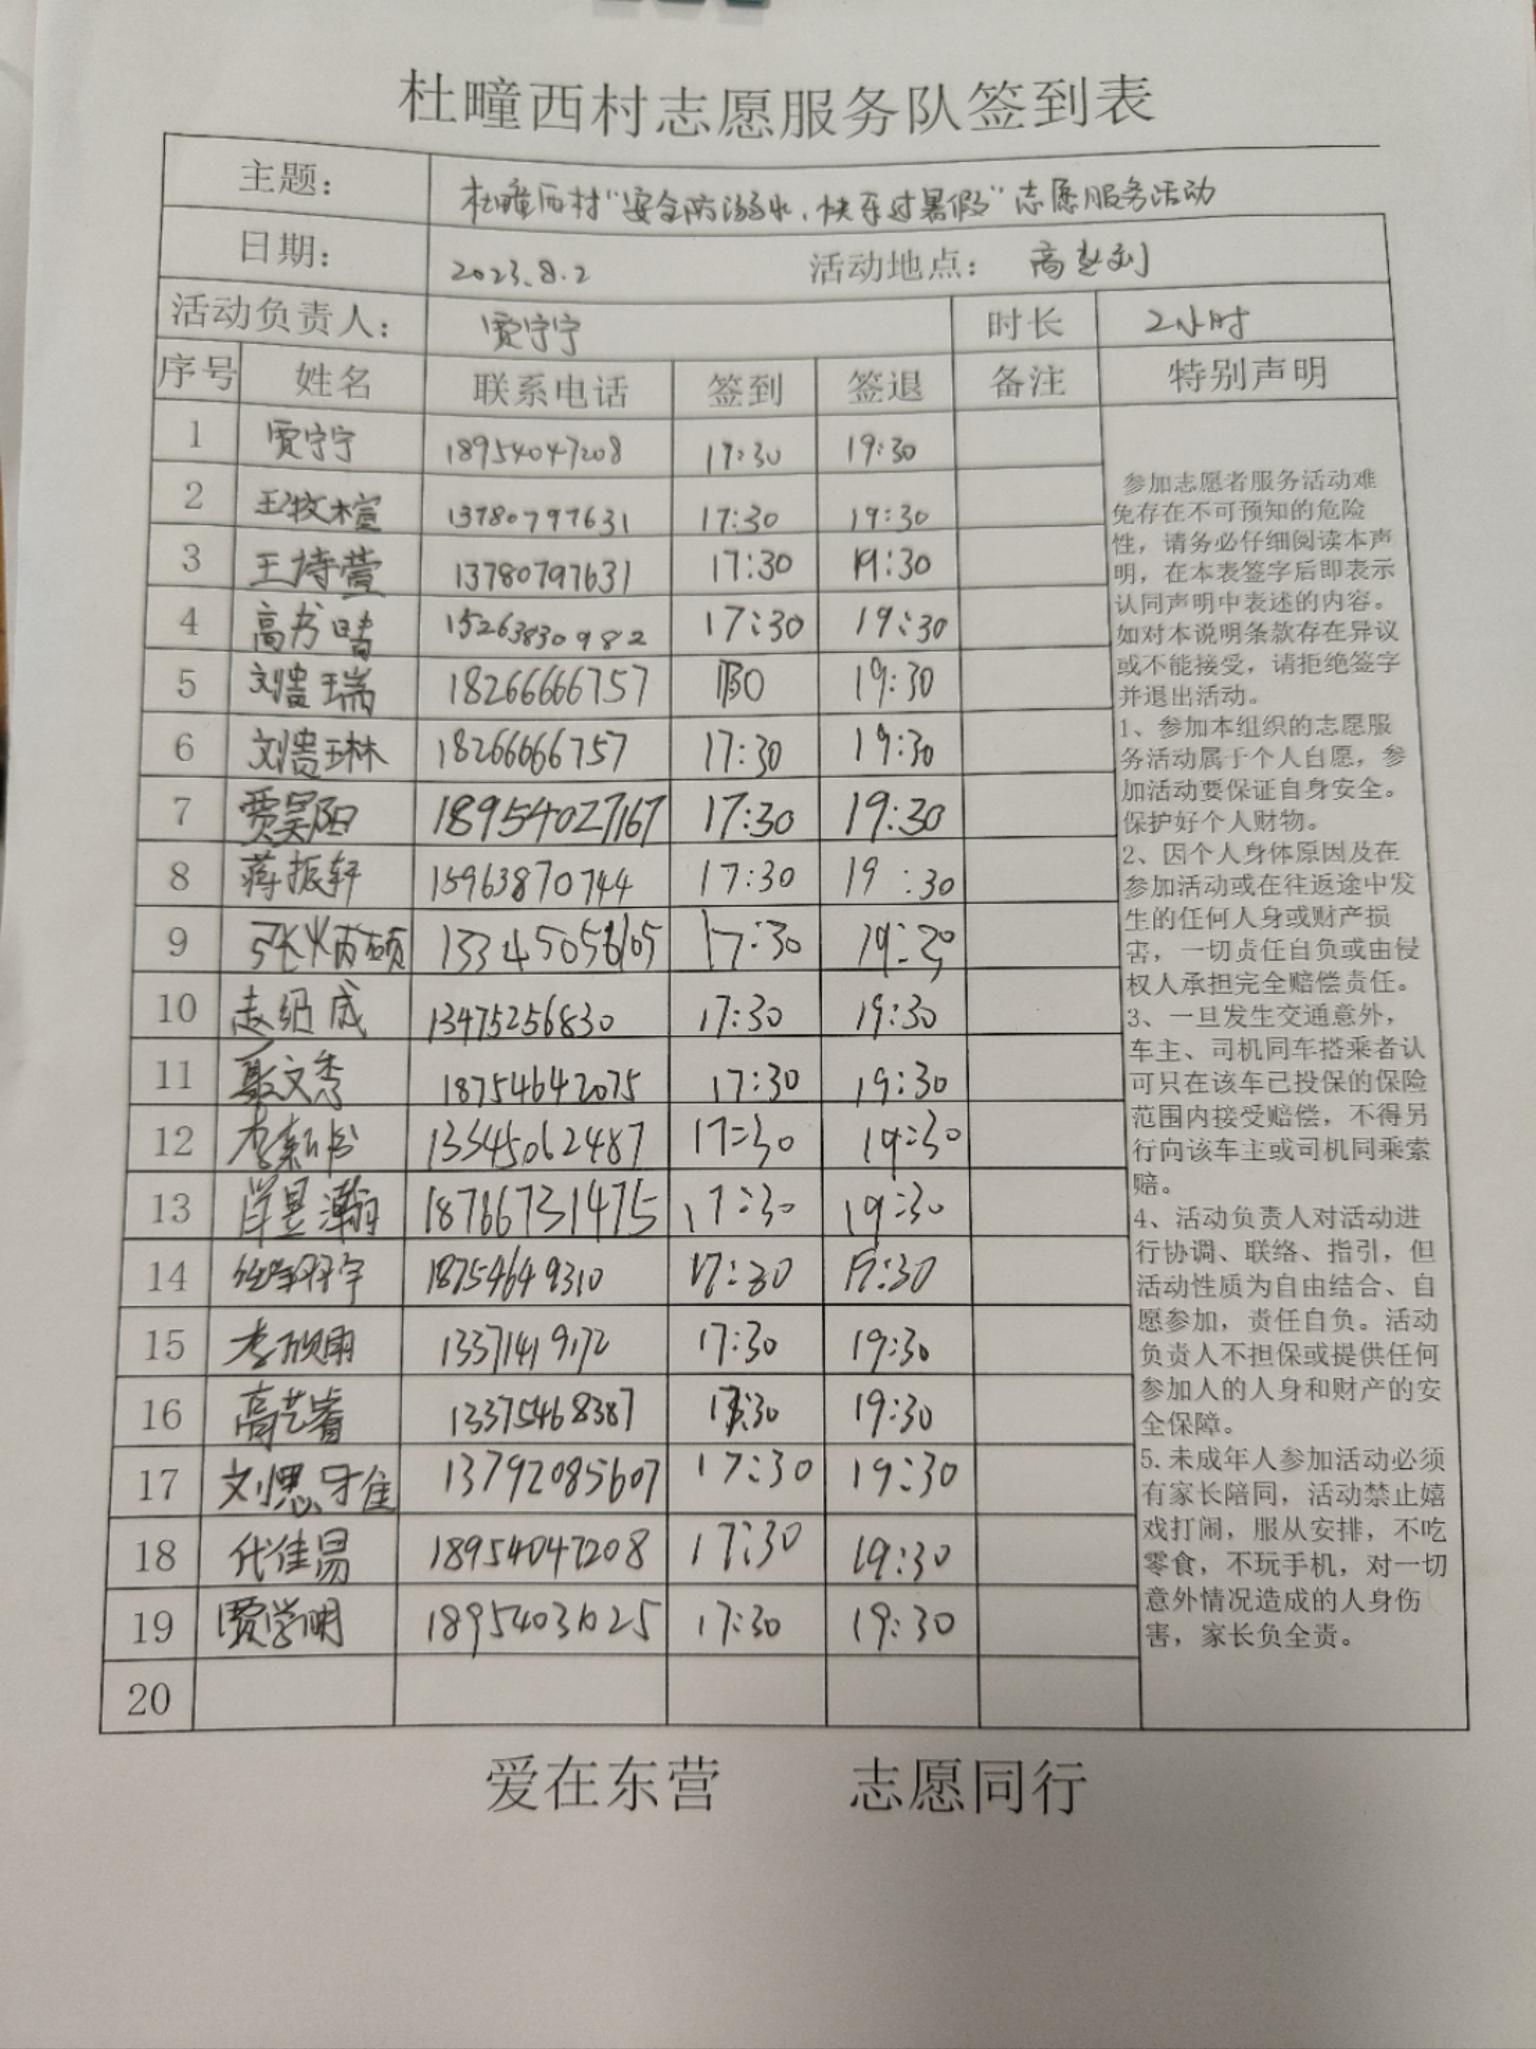 杜疃西村志愿服务队签到表
主题： 杜疃西村“安全防溺水、快乐过暑假”志愿服务活动
日期： 2023.8.2 活动地点：
活动负责人： 贾宁宁 时长 2小时
序号 姓名 联系电话 签到 签退 备注 特别声明
1 贾宁宁 18954047208 17:30 19:30
2 王牧楦 13780797631 17:30 19:30
3 王诗萱 13780797631 17:30 19:30
4 高书晴 15263830982 17:30 19:30
5 刘贵瑞 18266666757 19:30
6 刘贵琳 18266666757 17:30 19:30
7 贾昊阳 18954027167 17:30 19:30
8 蒋振轩 15963870744 17:30 19:30
9 张炳硕 17:30 19:30
10 13475256830 17:30 19:30
11 文秀 18754642075 17:30 19:30
12 李 13345062487 17:30 19:30
13 昱瀚 18766731475 17:30 19:30
14 宇 18754649310 17:30 19:30
15 李欣雨 13371419172 17:30 19:30
16 高艺睿 13375468387 17:30 19:30
17 刘思雅 13792085607 17:30 19:30
18 代佳易 18954047208 17:30 19:30
19 贾学明 18954031025 17:30 19:30
20
参加志愿者服务活动难
免存在不可预知的危险
性，请务必仔细阅读本声
明，在本表签字后即表示
认同声明中表述的内容。
如对本说明条款存在异议
或不能接受，请拒绝签字
并退出活动。
1、参加本组织的志愿服
务活动属于个人自愿，参
加活动要保证自身安全。
保护好个人财物。
2、因个人身体原因及在
参加活动或在往返途中发
生的任何人身或财产损
害，一切责任自负或由侵
权人承担完全赔偿责任。
3、一旦发生交通意外，
车主、司机同车搭乘者认
可只在该车已投保的保险
范围内接受赔偿，不得另
行向该车主或司机同乘索
赔。
4、活动负责人对活动进
行协调、联络、指引，但
活动性质为自由结合、自
愿参加，责任自负。活动
负责人不担保或提供任何
参加人的人身和财产的安
全保障。
5.未成年人参加活动必须
有家长陪同，活动禁止嬉
戏打闹，服从安排，不吃
零食，不玩手机，对一切
意外情况造成的人身伤
害，家长负全责。
爱在东营 志愿同行